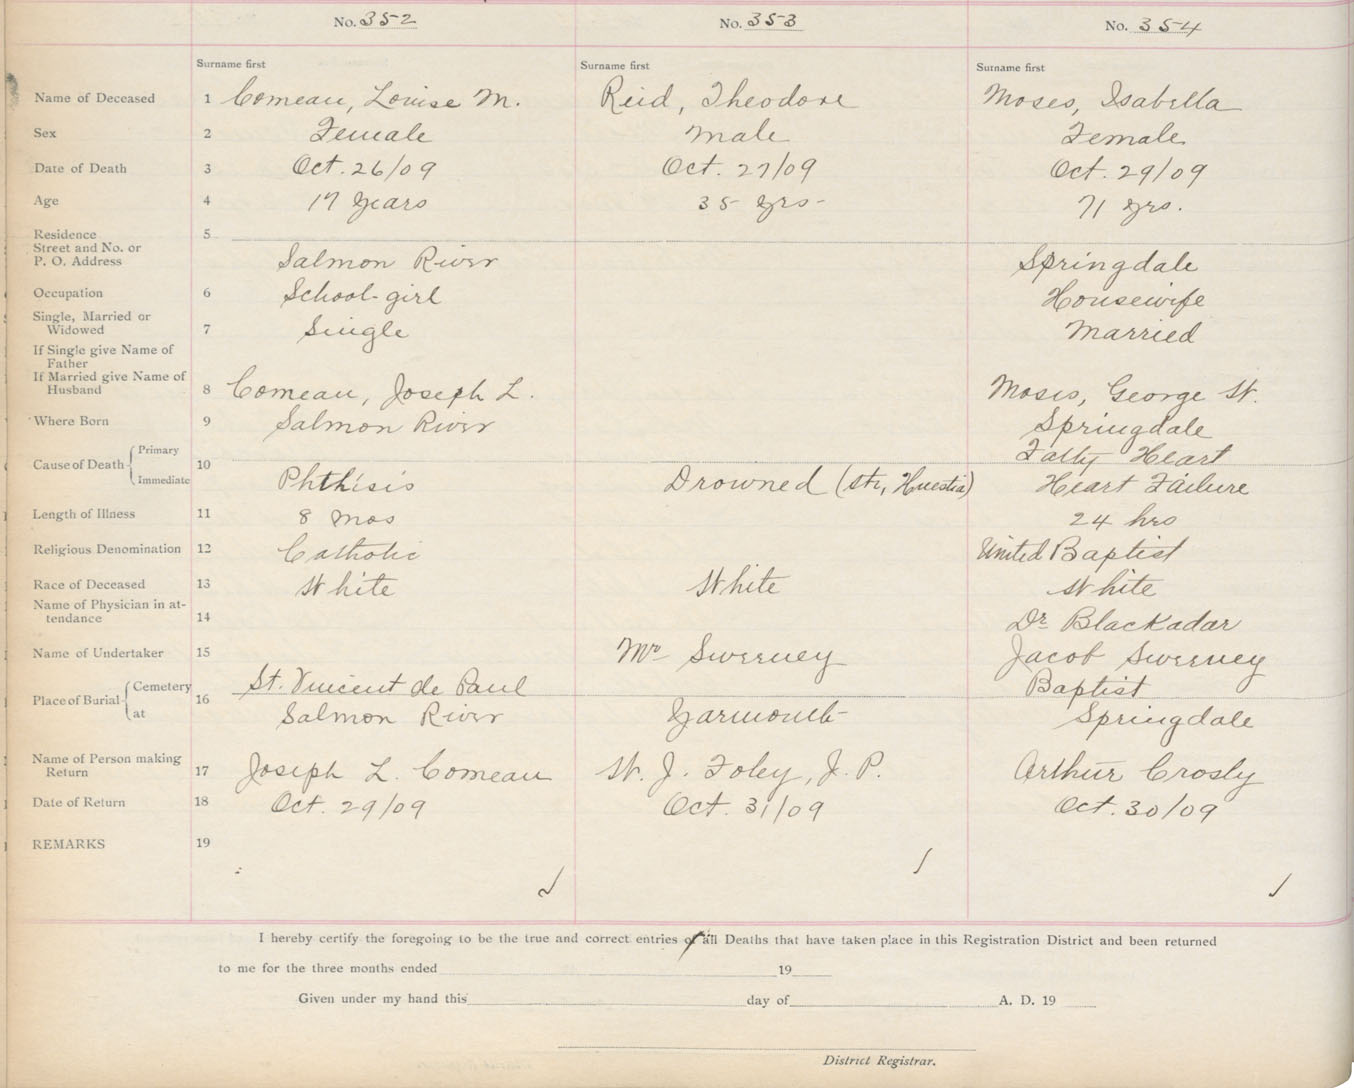 No. 352 No. 353 No. 354
Surname first Surname first Surname first
Name of Deceased 1 Comeau, Louise M. Reid, Theodore Moses, Isabella
Sex 2 Female Male Female
Date of Death 3 Oct. 26/09 Oct. 27/09 Oct. 29/09
Age 4 17 years 35 yrs- 71 yrs.
Residence 5
Street and No. or
P. O. Address Salmon River Springdale
Occupation 6 School-girl Housewife
Single, Married or
Widowed 7 Single Married
If Single give Name of
Father
If Married give Name of
Husband 8 Comeau, Joseph L. Moses, George W.
Where Born 9 Salmon River Springdale
Cause of Death Primary 10 Fatty Heart
Immediate Phthisis Drowned (Str, Huestia) Heart Failure
Length of Illness 11 8 mos 24 hrs
Religious Denomination 12 Catholic United Baptist
Race of Deceased 13 White White White
Name of Physician in at-
tendance 14 Dr Blackadar
Name of Undertaker 15 Mr Sweeney Jacob Sweeney
Place of Burial Cemetery 16 St. Vincent de Paul Baptist
at Salmon River Yarmouth Springdale
Name of Person making
Return 17 Joseph L. Comeau W. J. Foley, J. P. Arthur Crosby
Date of Return 18 Oct. 29/09 Oct. 31/09 Oct. 30/09
REMARKS 19
I hereby certify the foregoing to be the true and correct entries of all Deaths that have taken place in this Registration District and been returned
to me for the three months ended 19
Given under my hand this day of A. D. 19
District Registrar.